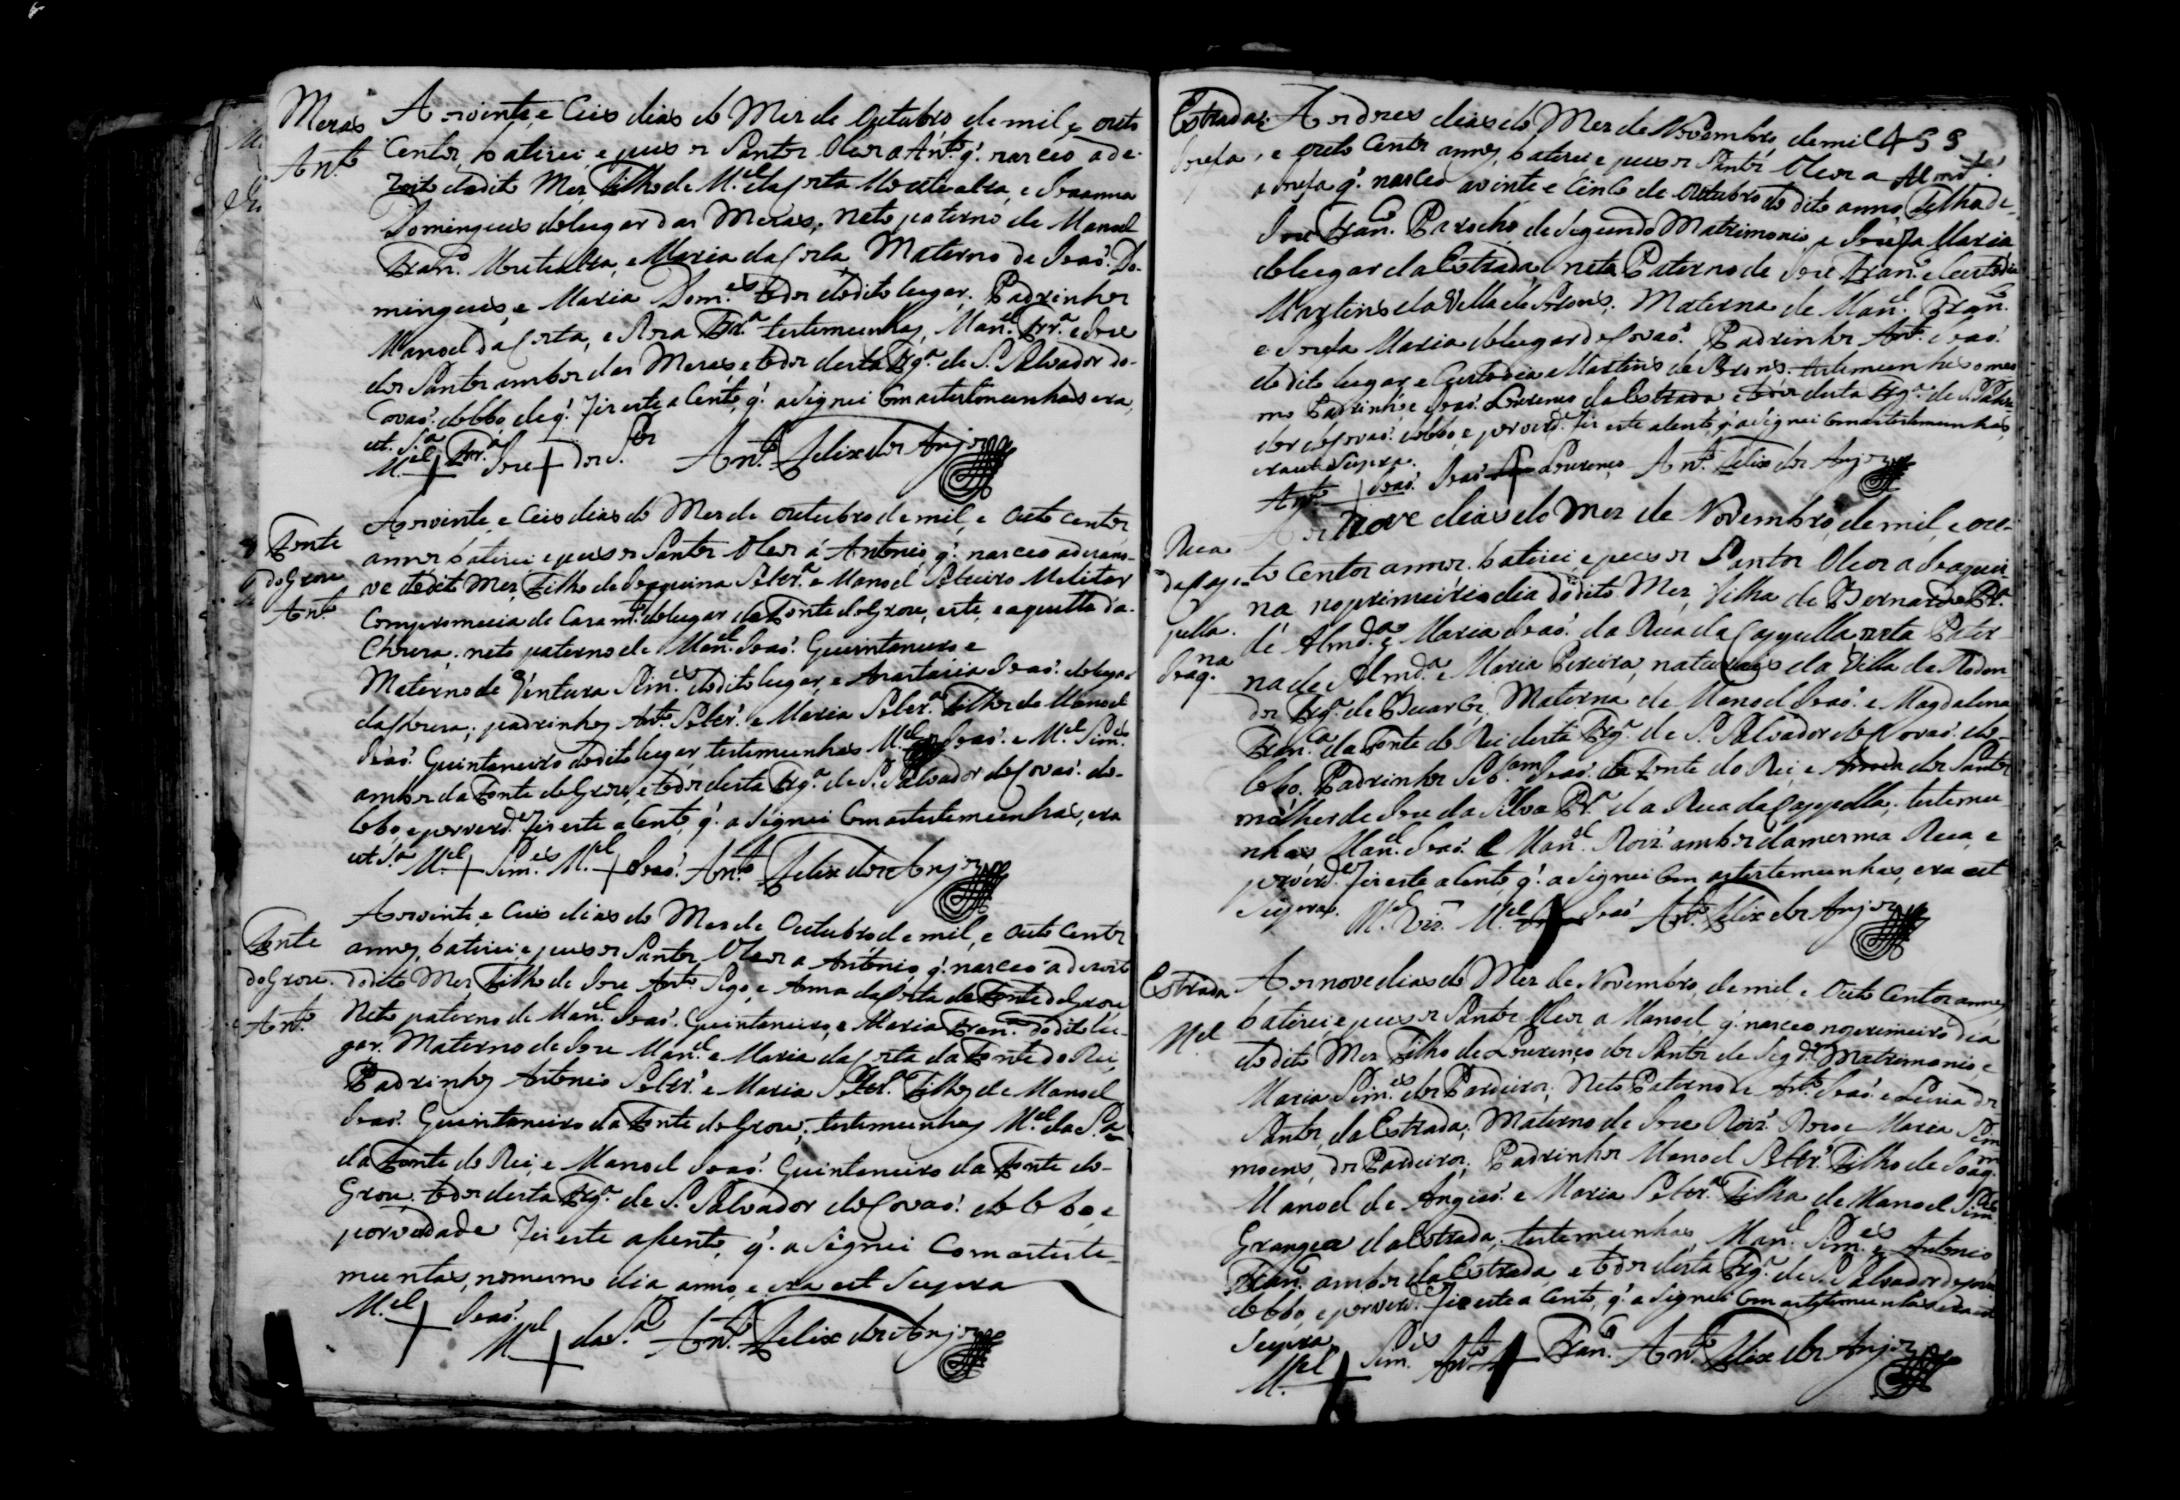 Meras
Ant.º
Aos vinte, e Ceis dias do Mes de Outubro de mil, e outo
Centos, batizei e pus os Santos Oleos a Ant.º q. nasceo a de-
zoito do dito Mes, Filho de M.el da Costa Montealva, e Joanna
Domingues do lugar das Meras, Neto paterno de Manoel
Fran.co Montealva, e Maria da Costa Materno de Joaõ Do-
mingues, e Maria Dom.es todos do dito lugar. Padrinhos
Manoel da Costa, e Roza Frr.ª testemunhas, Man.el Frr.ª e Joze
dos Santos ambos das Meras, e todos desta Frg.ª de S. Salvador do
Covaõ do Lobo, de q. Fiz este acento, q. asignei Com as testemunhas era
ut S.ª
M.el + Frr.ª Joze + dos S.tos Ant.º Felix dos Anjos
Fonte
do Grou
Ant.º
Aos vinte, e Ceis dias do Mes de outubro de mil, e outo centos
annos batizei e pus os Santos Oleos á Antonio, q. nasceo a dezano-
ve do dito Mes, Filho de Joaquina Rebr.ª e Manoel Ribeiro Militar
Compromecia de Cazam.to do lugar da Fonte do Grou, este, e aquella da
Choura, neto paterno de Man.el Joaõ. Quintaneiro e
Materno de Ventura Sim.es do dito lugar, e Anastacia Joaõ. do lugar
da Choura; padrinhos Ant.º Rebr.º e Maria Rebr.ª Filhos de Manoel
Joaõ. Quintaneiro do dito lugar, testemunhas M.el Joaõ. e M.el Sim.es
ambos da Fonte do Grou, e todos desta Frg.ª de S. Salvador do Covaõ. do
Lobo e por verd.e Fiz este acento, q. asignei Com as testemunhas, era
ut S.ª M.el + Sim.es M.el + Joaõ. Ant.º Felix dos Anjos
Fonte
do Grou
Ant.º
Aos vinte, e Ceis dias do Mes de Outubro de mil, e outo Centos
annos, batizei e pus os Santos Oleos a Antonio, q. nasceo a dezoito
do dito Mes Filho de Joze Ant.º Sigo, e Anna da Costa da Fonte do Grou
Neto paterno de Man.el Joaõ. Quintaneiro, e Maria Fran.ca do dito lu-
gar. Materno de Joze Man.el e Maria da Costa da Fonte do Rei,
Padrinhos Antonio Rebr.º e Maria Rebr.ª Filhos de Manoel
Joaõ. Quintaneiro da Fonte do Grou; testemunhas M.el da S.ª
da Fonte do Rei, e Manoel Joaõ. Quintaneiro da Fonte do
Grou, todos desta Frg.ª de S. Salvador do Covaõ. do Lobo, e
por verdade Fiz este asento, q. asignei Com as teste-
muntas, no mesmo dia, anno, e era ut Supra
M.el + Joaõ.
M.el + da S.ª Ant.º Felix dos Anjos
455
Estrada
Josefa
Aos dozes dias do Mes de Novembro de mil
e outo Centos annos, batizei e pus os Santos Oleos a
a Josefa q. nasceo a vinte e Cinco de outubro do dito anno, Filha de
Joze Fran.co Parocho, de segundo Matrimonio, e Josefa Maria
do lugar da Estrada, neta Paterna de Joze Fran.co e Custodia
Martins da Villa de Arons. Materna de Man.el Fran.co
e Josefa Maria do lugar do Covaõ. Padrinhos Ant.º Joaõ.
do dito lugar, e Custodia Martins de Arons. testemunhas o mes-
mo Padrinho, e Joaõ. Lourenço da Estrada e todos desta Frg.ª de S. Salva-
dor do Covaõ. do Lobo, e por verd.e Fiz este asento, q. asignei Com as testemunhas,
era ut Supra.
Ant.º + Joaõ. Joaõ + Lourenço Ant.º Felix dos Anjos
Rua
da Cap-
pella.
Joaq.na
Aos nove dias do Mes de Novembro, de mil, e ou-
to Centos annos. batizei, e pus os Santos Oleos a Joaqui-
na, no primeiro dia do dito Mes, Filha de Bernardo Pr.ª
de Almd.ª e Maria Joaõ. da Rua da Cappella neta Pater-
na de Almd.ª e Maria Pereira, naturais da Villa de
Frg.ª de Materna de Manoel Joaõ. e Magdalena
Fran.ca da Fonte do Rei desta Frg.ª de S. Salvador do Covaõ. do
Lobo. Padrinhos Seb.am Joaõ. da Fonte do Rei, e Anna dos Santos
mulher de Joze da Silva Pr.ª da Rua da Cappella; testemu-
nhas Man.el Joaõ. e Man.el Roiz. ambos da mesma Rua, e
por verd.e Fiz este asento q. asignei Com as testemunhas, era ut
Supra.
M.el Roiz. M.el + Joaõ Ant.º Felix dos Anjos
Estrada
M.el
Aos nove dias do Mes de Novembro, de mil, e outo Centos annos
batizei e pus os Santos Oleos a Manoel, q. nasceo no primeiro dia
do dito Mes Filho de Lourenço dos Santos de Seg.do Matrimonio, e
Maria Sim.es dos Pardeiros, Neto Paterno de Ant.º Joaõ. e Luzia dos
Santos, da Estrada, Materno de Joze Roiz. Novo e Maria Si-
moens, dos Pardeiros, Padrinhos Manoel Rebr.º Filho de Joaq.m
Manoel de Angiaõ. e Maria Rebr.ª Filha de Manoel Sim.es
Grangea da Estrada; testemunhas, Man.el Sim.es e Antonio
Fran.co ambos da Estrada, e todos desta Frg.ª de S. Salvador do Covaõ
do Lobo, e por verd.e Fiz este a Cento, q. asignei Com as testemunhas era ut
Supra
M.el + Sim.es Ant.º + Fran.co Ant.º Felix dos Anjos